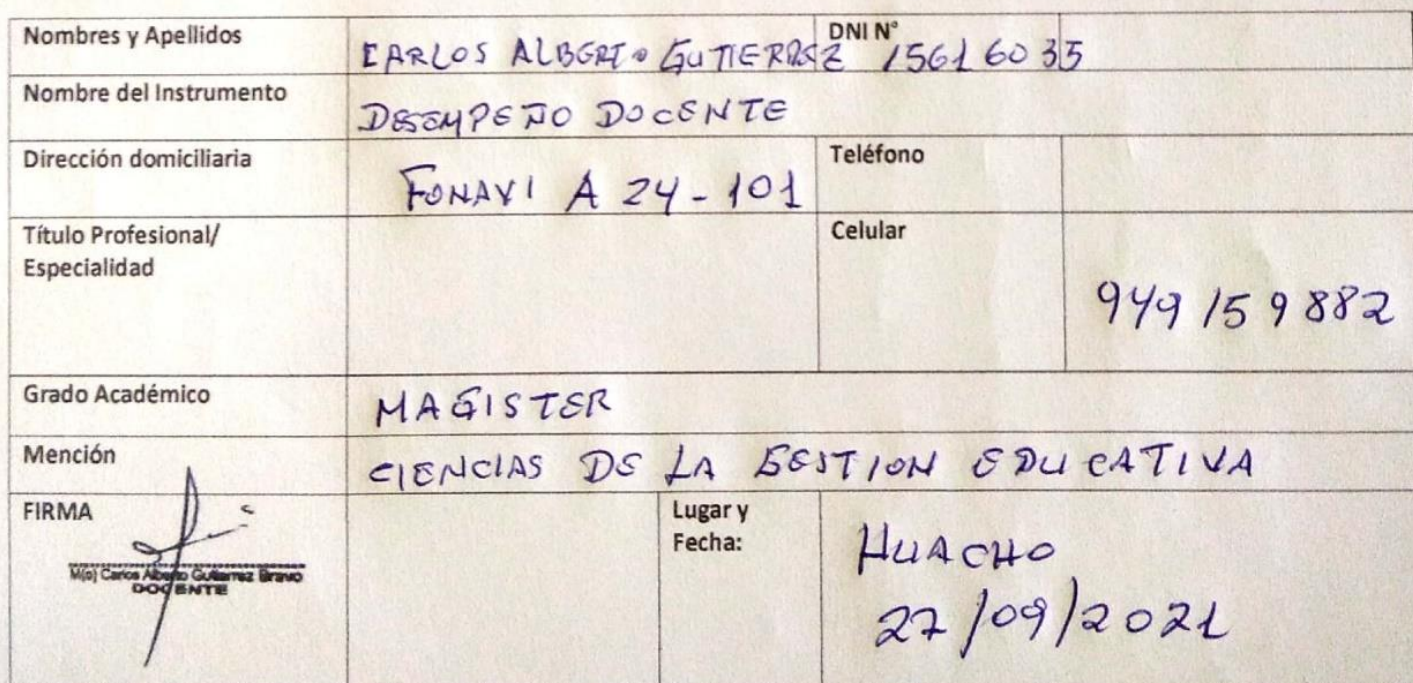 Nombres y Apellidos CARLOS ALBERTO GUTIERREZ DNI N° 15616035
Nombre del Instrumento DESEMPEÑO DOCENTE
Dirección domiciliaria FONAVI A 24-101 Teléfono
Título Profesional/
Especialidad
Celular 949159882
Grado Académico MAGISTER
Mención CIENCIAS DE LA GESTION EDUCATIVA
FIRMA
M(o) Carlos Alberto Gutierrez Bravo
DOCENTE
Lugar y
Fecha:
HUACHO
27/09/2021